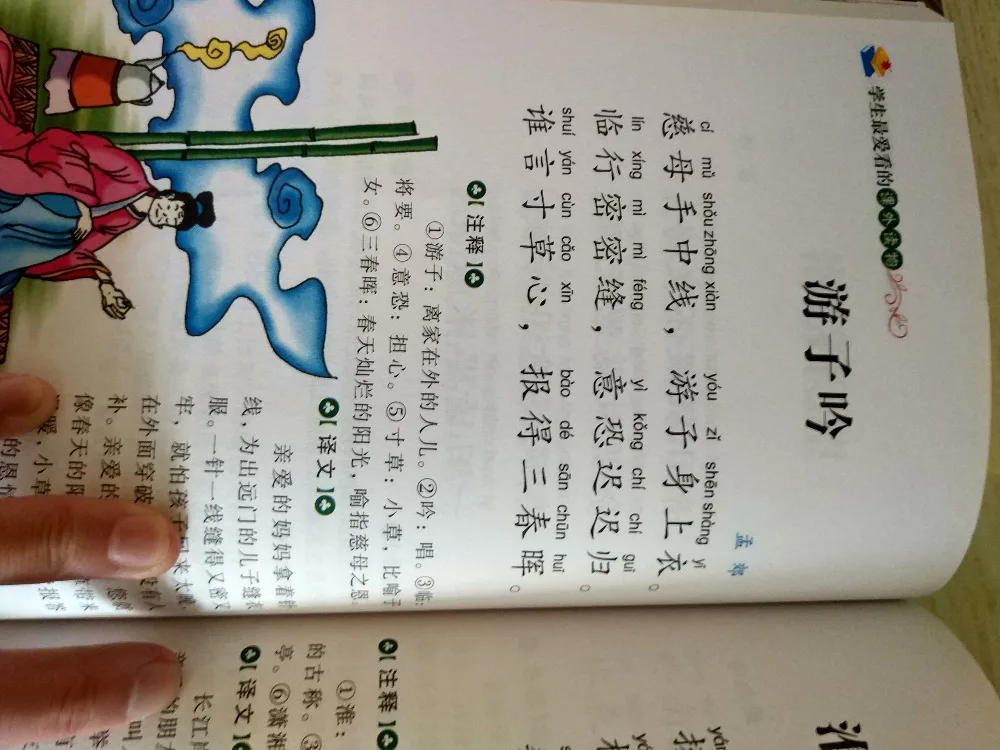 学生最爱看的课外读物
游子吟
孟 郊
cí mǔ shǒu zhōng xiàn yóu zǐ shēn shàng yī
慈母手中线，游子身上衣。
lín xíng mì mì féng yì kǒng chí chí guī
临行密密缝，意恐迟迟归。
shuí yán cùn cǎo xīn bào dé sān chūn huī
谁言寸草心，报得三春晖。
【注释】
①游子：离家在外的人儿。②吟：唱。③临：
将要。④意恐：担心。⑤寸草：小草，比喻子
女。⑥三春晖：春天灿烂的阳光，喻指慈母之恩。
【译文】
亲爱的妈妈拿着针
线，为出远门的儿子缝衣
服。一针一线缝得又密又
牢，就怕孩子回来太晚
在外面穿破
补。亲爱的
像春天的阳
暖，小草
的恩情
【注释】
①淮：
的古称。③
亭。⑥潇湘
【译文】
长江
的朋友